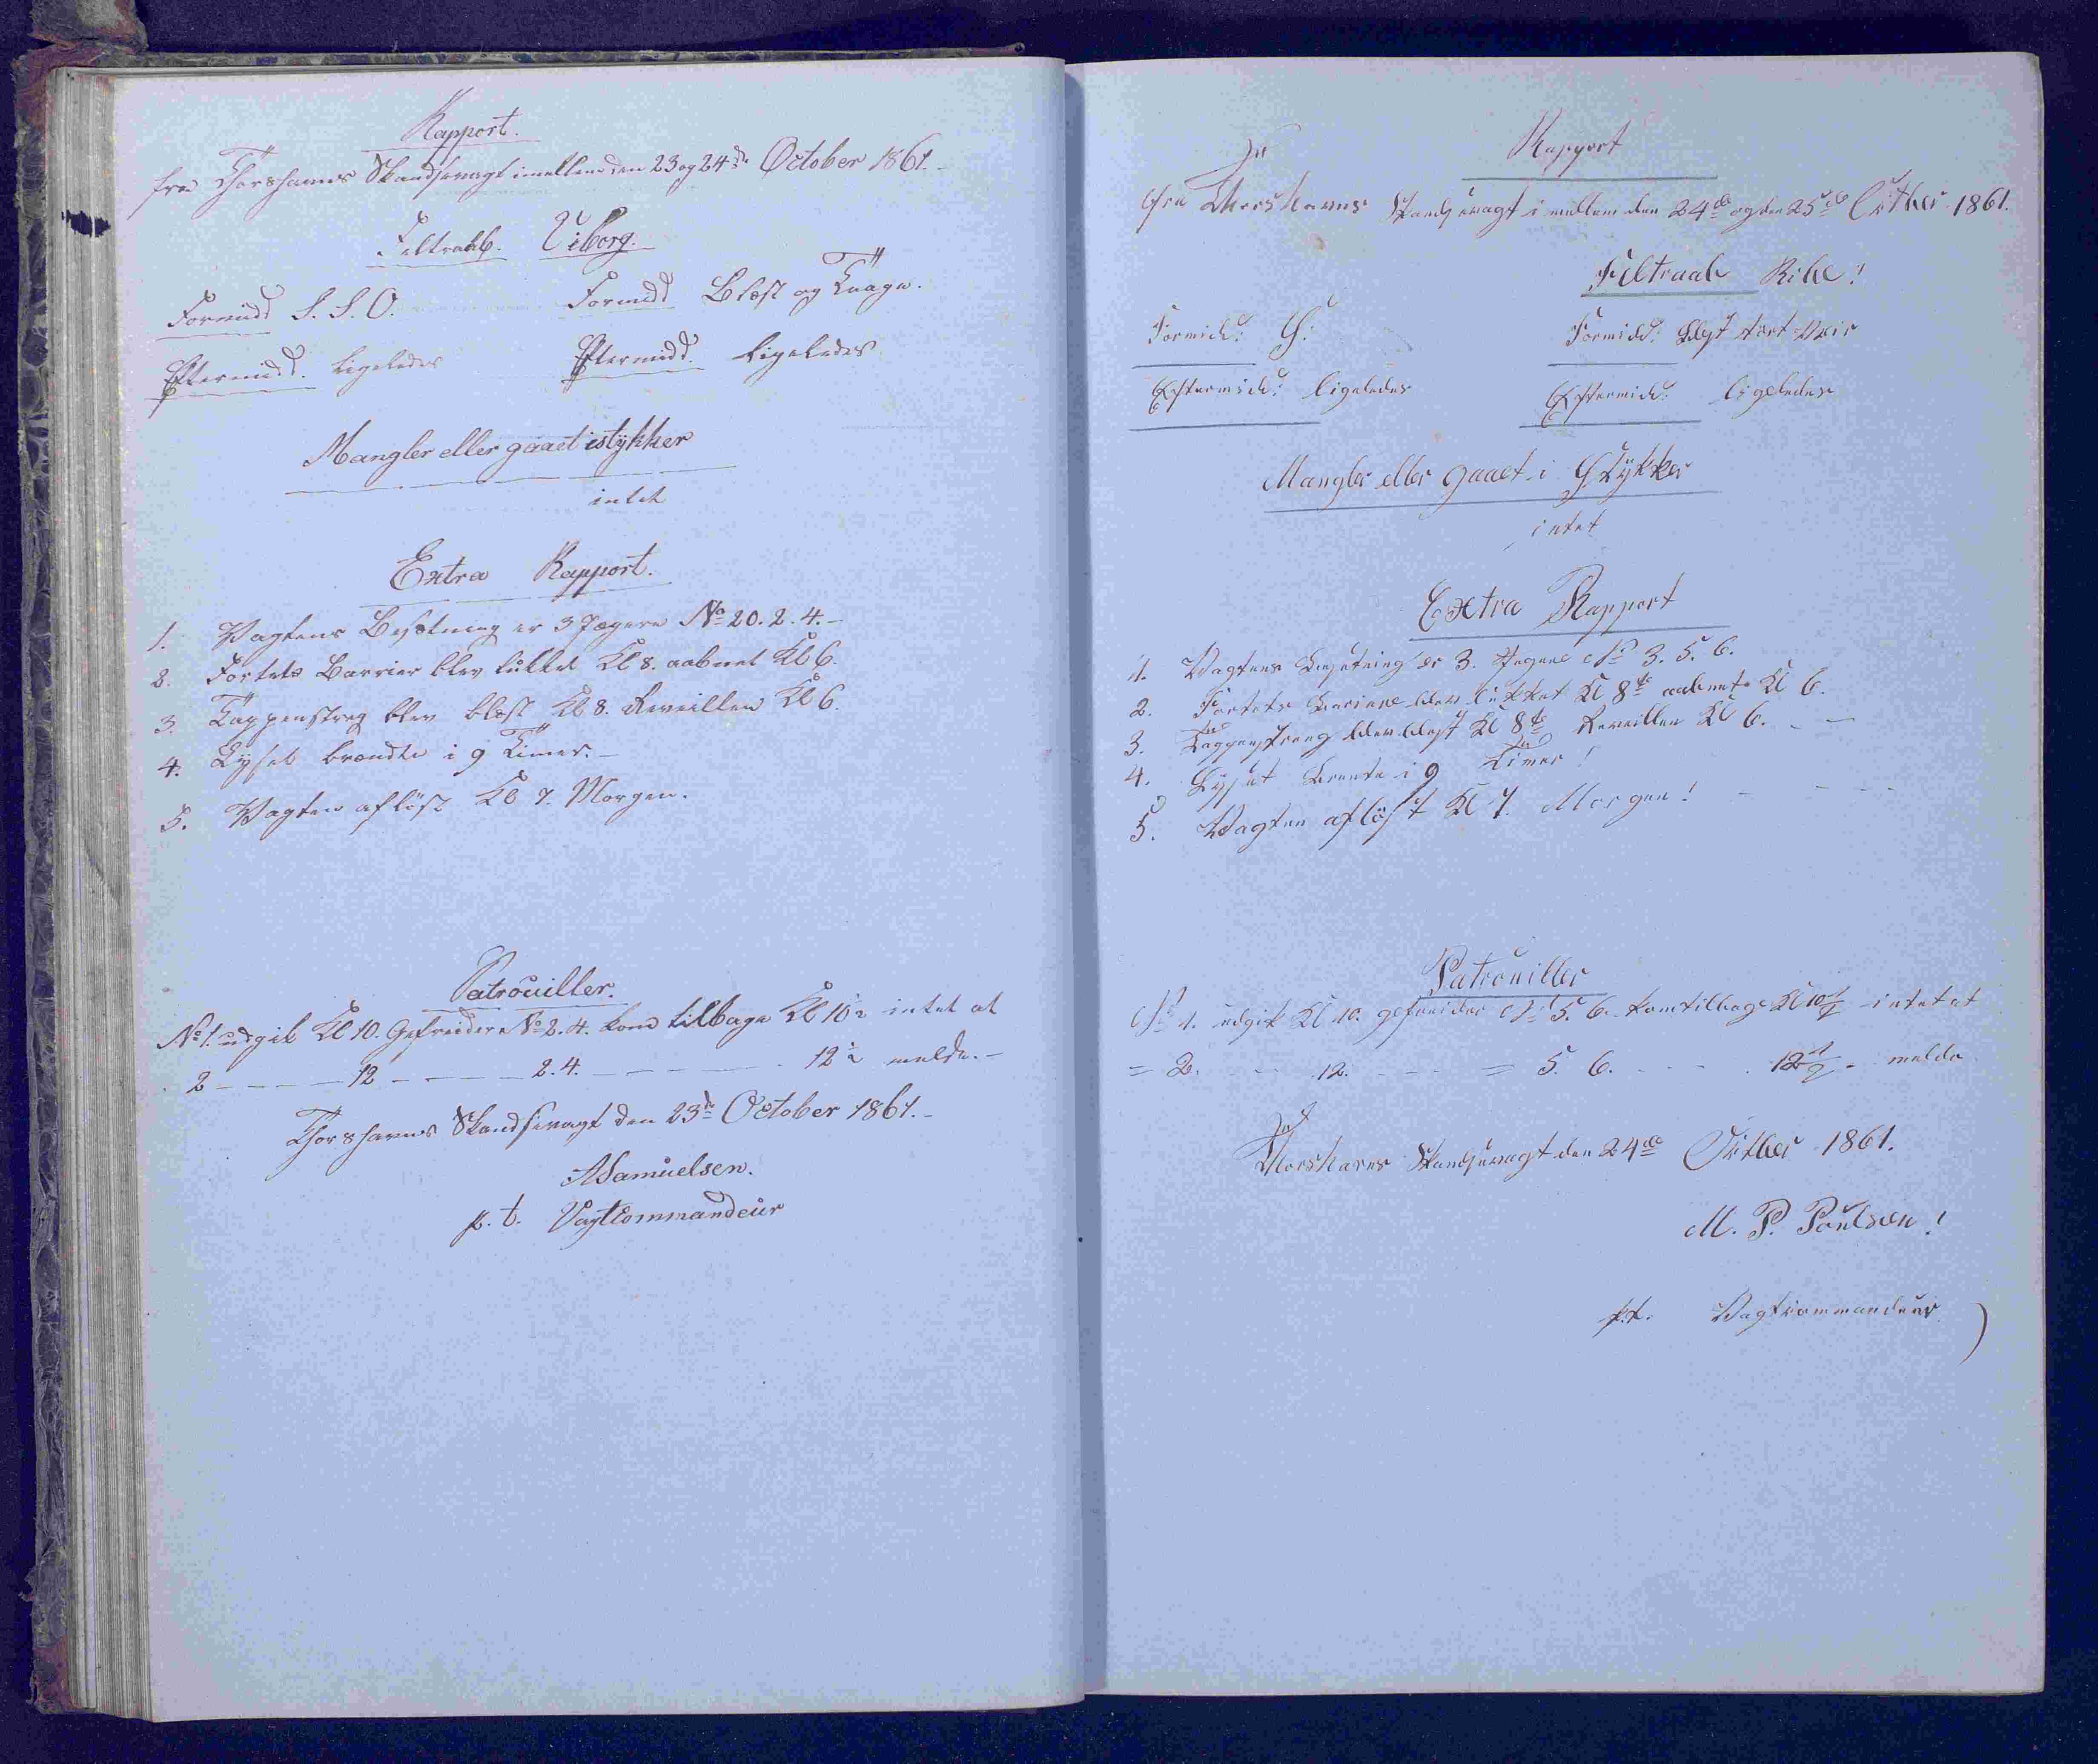 Rapport.
fra Thorshavns Skandsevagt imellem den 23 og 24de October 1861.
Feltraab. Viborg.
Formidd S. S. O. Formidd Blæst og Taage.
Eftermidd. Ligeledes Eftermidd. Ligeledes
Mangler eller gaaet istykker
intet
Extra Rapport.
1. Vagtens Besætning er 3 Jægere No 20. 2. 4. -
2. Fortets Barrier blev lukket Kl 8. aabnet Kl 6.
3. Tappenstreg blev blæst Kl 8. Reveillen Kl 6.
4. Lyset brændte i 9 Timer. -
5. Vagten afløst Kl 7. Morgen.
Patrouiller.
No 1. udgik Kl 10. Gefreidere No 2. 4. kom tilbage Kl 10½ intet at
2 - - - - 12 - - - - 2. 4. - - - - - 12½ melde. -
Thorshavns Skandsevagt den 23de October 1861. -
A Samuelsen.
p. t. Vagtcommandeur
Rapport
fra Thorshavns Skandsevagt imellem den 24de og den 25de Octber 1861.
Feltraab Ribe!
Formidd: S: Formidd: Blæst tørt Veir
Eftermidd: ligeledes Eftermidd: ligeledes
Mangler eller gaaet i Stykker
intet
Extra Rapport
1. Vagtens Besætning er 3. Jegere No 3. 5. 6.
2. Fortets Bariere blev lukket Kl 8te aabnet Kl 6.
3. Tappenstreng blev blest Kl 8te Reveillen Kl 6. - -
4. Lyset Brente i 9 Timer!
5. Vagten afløst Kl 7. Morgen! - - - -
Patrouiller
No 1. udgik Kl 10. gefreider No 5. 6. kom tilbage Kl 10½ intet at
= 2. - - 12. - - - = 5. 6. - - - 12½ - melde
Thorshavns Skandsevagt den 24de Octber 1861.
M. P. Poulsen!
p.t. Vagtcommandeur